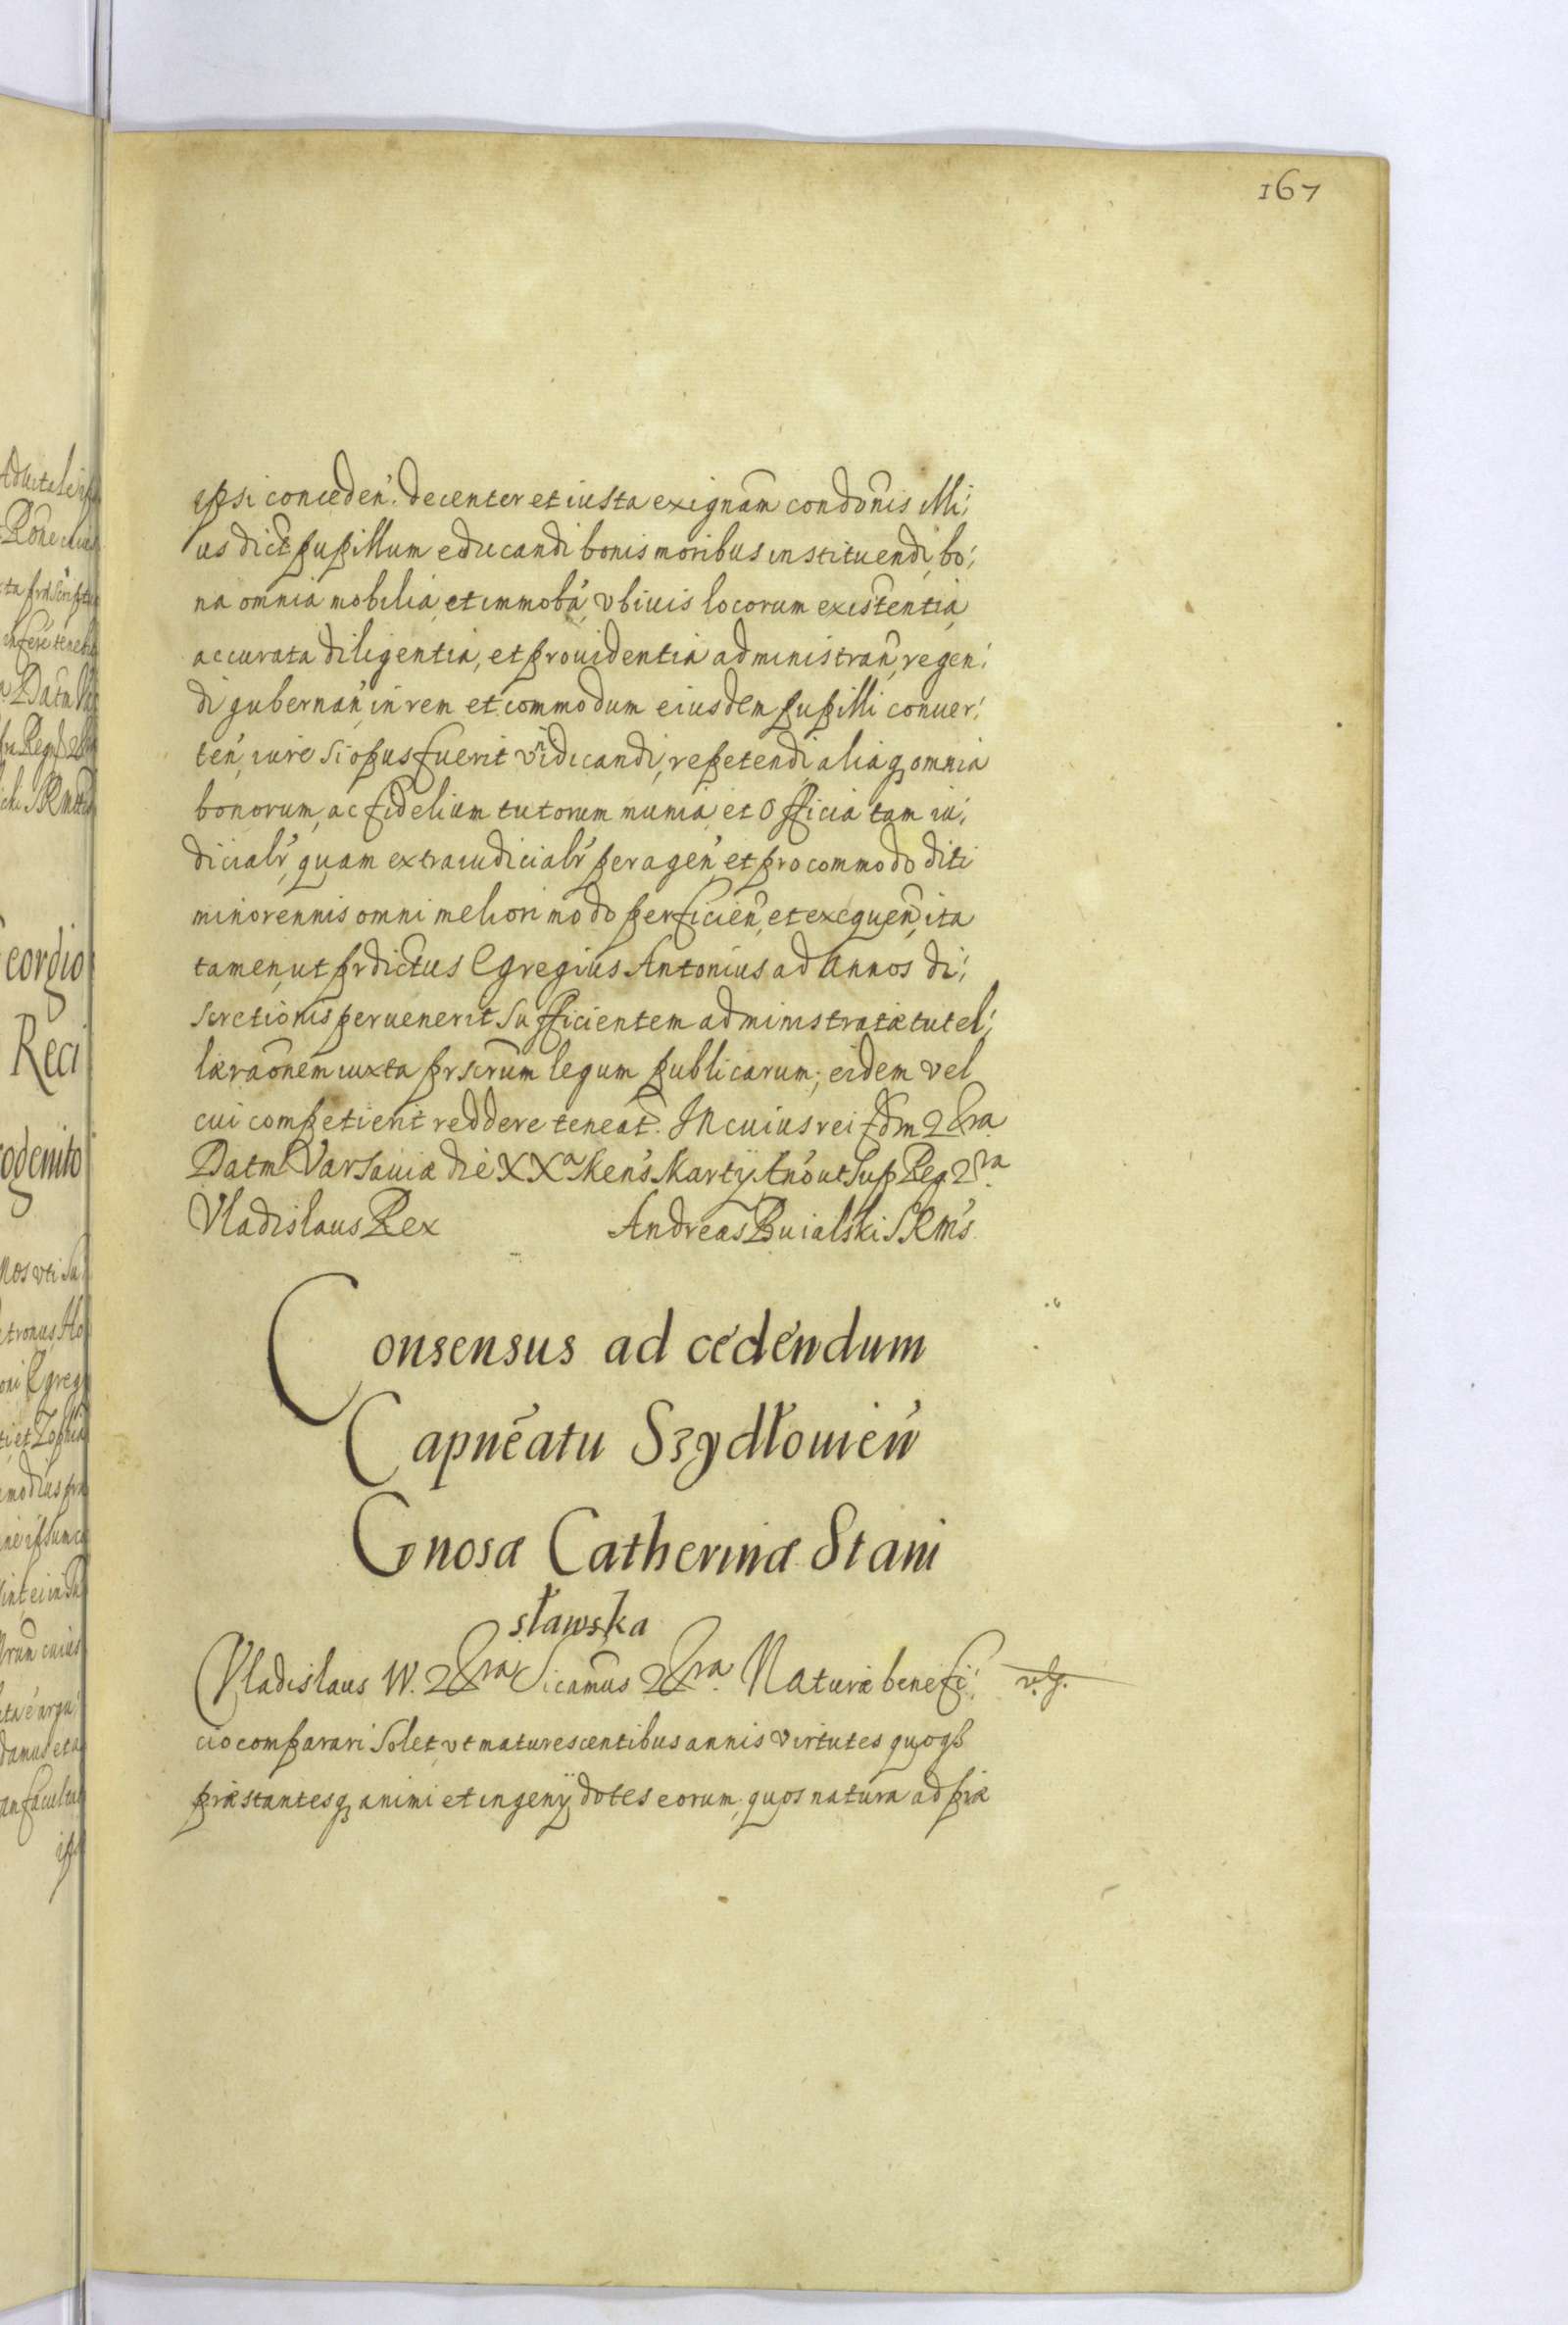 167
ipsi conceden̄. decenter et iusta exignām condōnis illi:
us dicti pupillum educandi bonis moribus instituendi, bo:
na omnia mobilia, et immobā, vbiuis locorum existentia,
accurata diligentia, et prouidentia administran̄, regen:
di gubernan̄, in rem et commodum eiusdem pupilli conuer:
ten̄, iure si opus fuerit vindicandi, repetendi, aliaq₃ omnia
bonorum, ac fidelium tutorum munia, et Officia tam iu:
dicialr̄, quam extraiudicialr̄ peragen̄, et pro commodo dicti
minorennis omni meliori modo perficien̄, et exequen̄, ita
tamen, ut prdictus Egregius Antonius ad Annos di:
scretionis peruenerit sufficientem administratæ tutel:
læ raōnem iuxta prscrūm legum publicarum, eidem vel
cui competierit reddere teneat. In cuius rei fdm &ra.
Datm Varsauiæ die XXa Mens Martÿ Ano ut sup Reg &ra
Vladislaus Rex Andreas Buialski SRMs
Consensus ad cedendum
Capneatu Szydłouień
Gnosæ Catherinæ Stani
sławska
Vladislaus IV. &ra Sicamus &ra. Naturæ benefi:
v. g.
cio comparari solet, vt maturescentibus annis virtutes quoq₃
præstantesq₃ animi et ingenÿ dotes eorum, quos natura ad piæ